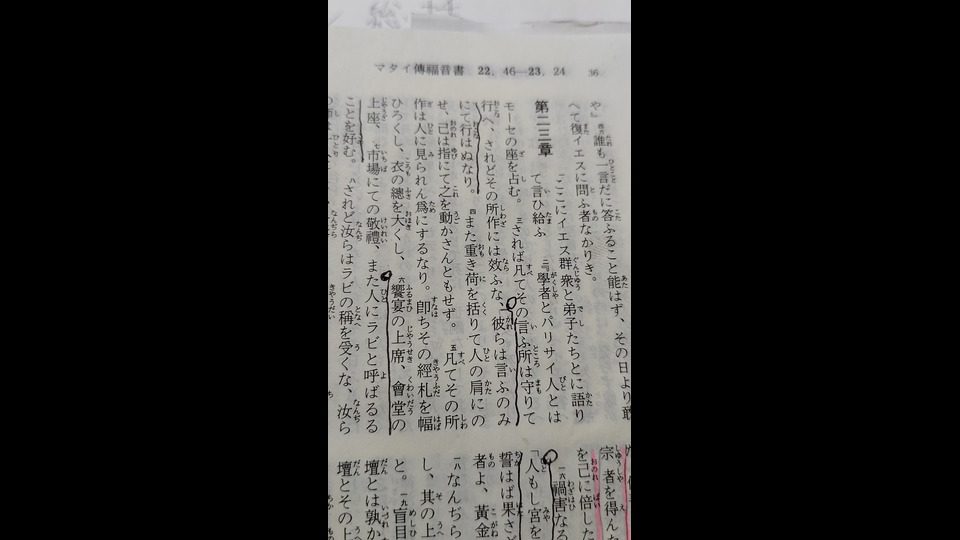 マタイ傳福音書 22, 46―23, 24 36
や』 誰も一言だに答ふること能はず、その日より敢
へて復イエスに問ふ者なかりき。
第二三章
ここにイエス群衆と弟子たちとに語り
て言ひ給ふ 二『學者とパリサイ人とは
モーセの座を占む。 三されば凡てその言ふ所は守りて
行へ、されどその所作には效ふな、彼らは言ふのみ
にて行はぬなり。 四また重き荷を括りて人の肩にの
せ、己は指にて之を動かさんともせず。 五凡てその所
作は人に見られん爲にするなり。即ちその經札を幅
ひろくし、衣の總を大くし、 六饗宴の上席、會堂の
上座、 七市場にての敬禮、また人にラビと呼ばるる
ことを好む。 八されど汝らはラビの稱を受くな、汝ら
宗者を得んた
を己に倍した
一六禍害なる
「人もし宮を
誓はば果さ
者よ、黄金
一八なんぢら
し、其の上
と。 一九盲目
壇とは孰か
壇とその上